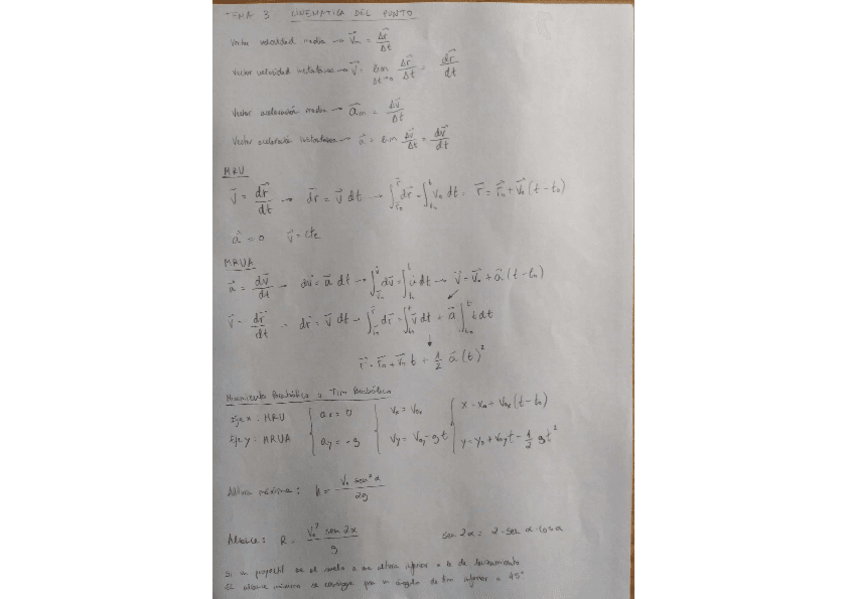 TEMA 3 CINEMATICA DEL PUNTO
Vector velocidad media → v⃗m = Δr⃗/Δt
Vector velocidad instantánea → v⃗ = lim Δt→0 Δr⃗/Δt = dr⃗/dt
Vector aceleración media → a⃗m = Δv⃗/Δt
Vector aceleración instantánea → a⃗ = lim Δv⃗/Δt = dv⃗/dt
MRU
v⃗ = dr⃗/dt → dr⃗ = v⃗ dt → ∫ dr⃗ = ∫ v₀ dt = r⃗ = r⃗₀ + v⃗₀ (t - t₀)
a⃗ = 0 v⃗ = cte
MRUA
a⃗ = dv⃗/dt → dv⃗ = a⃗ dt → ∫ dv⃗ = ∫ a⃗ dt → v⃗ = v⃗₀ + a⃗ (t - t₀)
v⃗ = dr⃗/dt → dr⃗ = v⃗ dt → ∫ dr⃗ = ∫ v⃗ dt + a⃗ ∫ t dt
r⃗ = r⃗₀ + v⃗₀ t + 1/2 a⃗ (t)²
Movimiento Parabólico o Tiro Parabólico
Eje x: MRU { ax = 0 { vx = v₀x { x = x₀ + v₀x (t - t₀)
Eje y: MRUA ay = -g vy = v₀y - gt y = y₀ + v₀y t - 1/2 gt²
Altura máxima: h = v₀ sen² α / 2g
Alcance: R = v₀² sen 2α / g sen 2α = 2 · sen α · cos α
Si el proyectil cae al suelo a una altura inferior a la de lanzamiento
El alcance máximo se consigue para un ángulo de tiro inferior a 45°